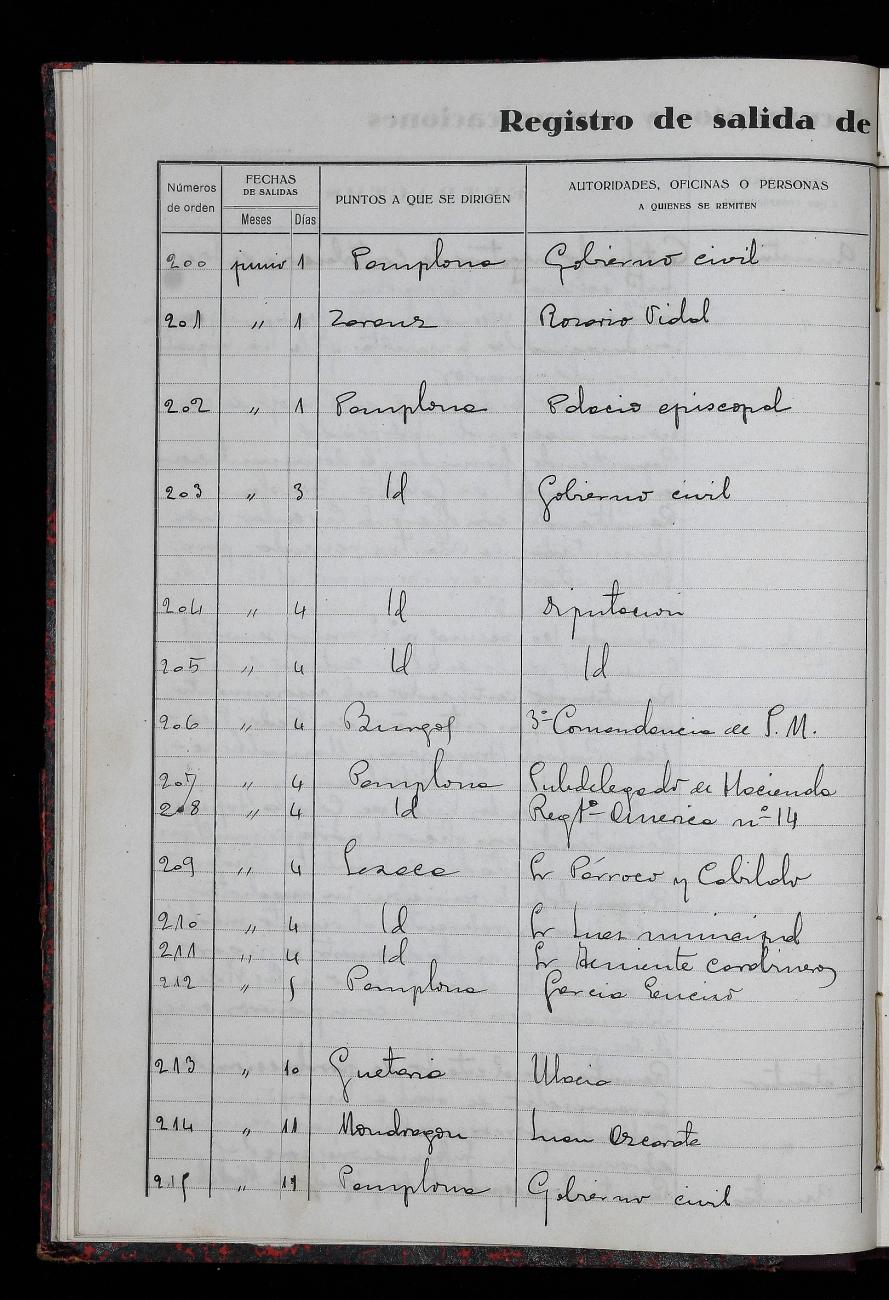 Registro de salida de
Números de orden | FECHAS DE SALIDAS Meses Días | PUNTOS A QUE SE DIRIGEN | AUTORIDADES, OFICINAS O PERSONAS A QUIENES SE REMITEN
200 junio 1 Pamplona Gobierno civil
201 " 1 Zarauz Rosario Vidal
202 " 1 Pamplona Palacio episcopal
203 " 3 Id Gobierno civil
204 " 4 Id Diputacion
205 " 4 Id Id
206 " 4 Burgos 3ª Comandancia de S. M.
207 " 4 Pamplona Subdelegado de Hacienda
208 " 4 Id Regtº America nº 14
209 " 4 Lesaca Sr Párroco y Cabildo
210 " 4 Id Sr Juez municipal
211 " 4 Id Sr Teniente carabineros
212 " 5 Pamplona Garcia Enciso
213 " 10 Guetaria Ulacia
214 " 11 Mondragon Juan Ascarate
215 " Pamplona Gobierno civil